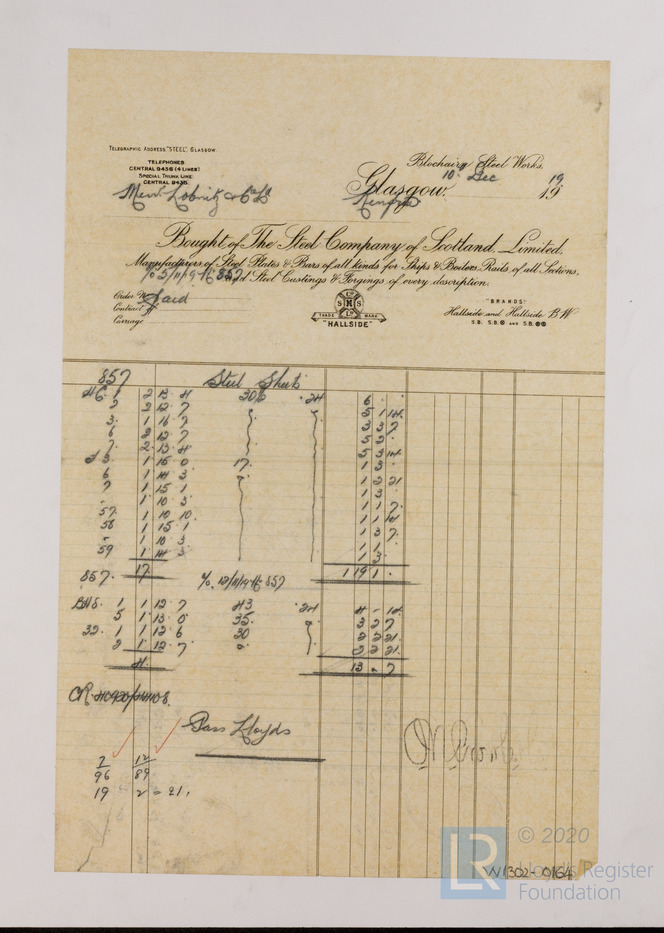 TELEGRAPHIC ADDRESS, "STEEL", GLASGOW.
TELEPHONES
CENTRAL 9436 (4 LINES)
SPECIAL TRUNK LINE
CENTRAL 9435.
Blochairn Steel Works,
Glasgow, 10 Dec 1919
Messrs Lobnitz & Co Ld
Renfrew
Bought of The Steel Company of Scotland, Limited,
Manufacturers of Steel Plates & Bars of all kinds for Ships & Boilers, Rails of all Sections,
and Steel Castings & Forgings of every description.
Yo 5/11/19 857
Order No
Contract
Carriage
Said
S Co S
TRADE MARK
"HALLSIDE"
"BRANDS"
Hallside and Hallside B.W
S.B. S.B. AND S.B.
857 Steel Sheets
1 2 13 4 30½ 24 6
2 2 12 7 5 1 14
3 1 16 7 3 3 7
6 2 12 7 5 2
7 2 13 4 5 3 14
1 15 0 17 1 3
6 1 14 3 1 2 21
7 1 15 1 1 3
1 10 3 1 1 7
57 1 10 10 1 1 14
58 1 15 1 1 3 7
1 10 3 1 1
59 1 14 3 1 3
857 17 Yo 12/11/19 857 1 19 1
1 1 12 7 43 24 4 - 14
5 1 13 0 35 3 2 7
32 1 1 12 6 30 2 2 21
2 1 12 7 2 2 21
4 13 - 7
CR
Pass Lloyds
7 12
96 89
19 2 - 21
W1302-0164
LR
© 2020
Lloyd's Register
Foundation